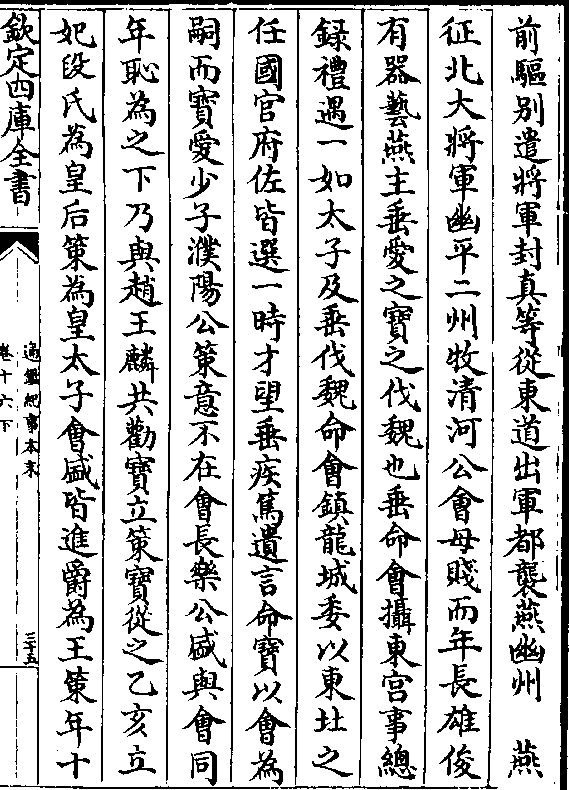 前驅别遣將軍封真等從東道出軍都襲燕幽州　燕
征北大將軍幽平二州牧清河公會母賤而年長雄俊
有器藝燕主垂愛之寶之伐魏也垂命會攝東宫事總
録禮遇一如太子及垂伐魏命會鎮龍城委以東北之
任國官府佐皆選一時才望垂疾篤遺言命寶以會為
嗣而寶愛少子濮陽公策意不在會長樂公盛與會同
年恥為之下乃與趙王麟共勸寶立策寶從之乙亥立
妃段氏為皇后策為皇太子會盛皆進爵為王策年十
欽定四庫全書
通鑑紀事本末
卷十六下
三十五